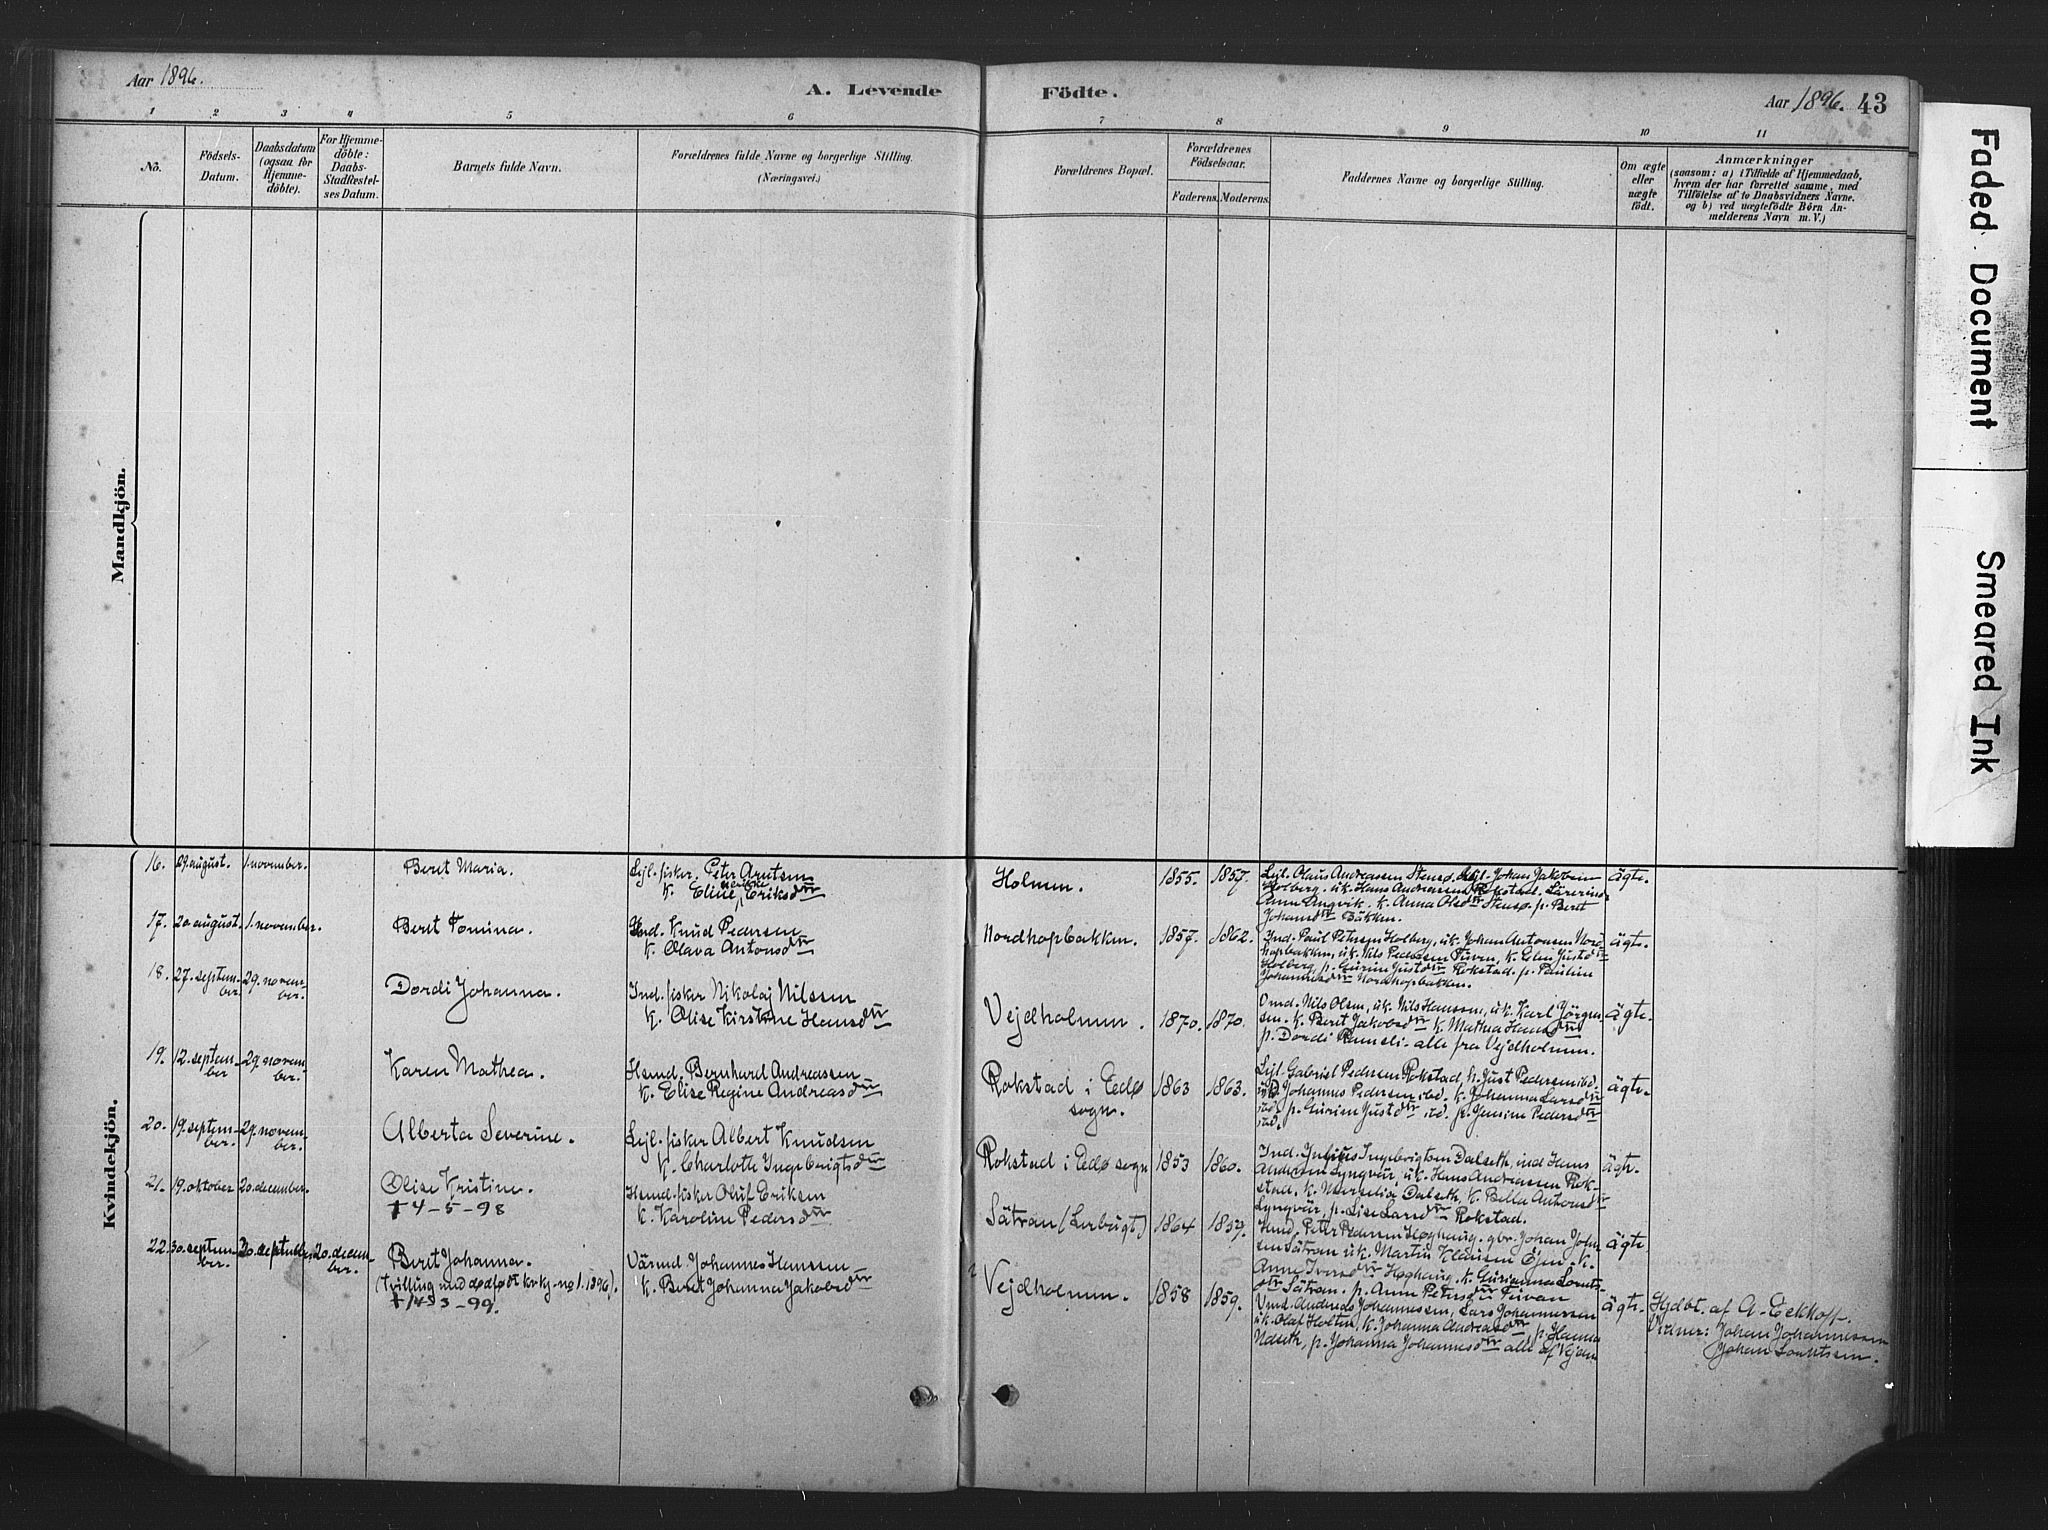 Aar 1896.
A. Levende
Födte.
Aar 1896. 43
1 2 3 4 5 6 7 8 9 10 11
No.
Födsels-
Datum.
Daabsdatum
(ogsaa for
Hjemme-
döbte).
For Hjemme-
döbte:
Daabs-
Stadfæstel-
ses Datum.
Barnets fulde Navn.
Forældrenes fulde Navne og borgerlige Stilling.
(Næringsvei.)
Forældrenes Bopæl.
Forældrenes
Födselsaar.
Faderens. Moderens.
Faddernes Navne og borgerlige Stilling.
Om ægte
eller
uægte
födt.
Anmærkninger
(saasom: a) i Tilfælde af Hjemmedaab,
hvem der har forrettet samme, med
Tilföielse af to Daabsvidners Navne.
og b) ved uægtefödte Börn An-
melderens Navn m. V.)
Mandkjön.
Kvindekjön.
16. 29. august. 1. november.
Berit Maria.
Lejl. fisker. Peter Arntsen
k. Eline Eriksdtr
Holmen.
1855. 1857.
Lejl. Olaus Andreassen Stensø. Lejl. Johan Jakobsen
Holberg. uk. Hans Andreassen Rokstad. Lærerinde
Anne Angvik. k. Anna Olsdtr Stensø. p. Berit
Johansdtr Bakken.
ägte.
17. 20. august. 1. november.
Berit Tomina.
Ind. Knud Pedersen
k. Olava Antonsdtr
Nordhopbakken.
1857. 1862.
Ind. Paul Petersen Holberg, uk. Johan Antonsen Nord-
hopbakken, uk. Nils Pedersen Tuven, k. Elen Justdtr
Holberg, p. Gurine Justdtr Rokstad. p. Pauline
Johannesdtr Nordhopbakken.
ägte.
18. 27. septem-
ber 29. novem-
ber.
Dordi Johanna.
Ind. fisker Nikolaj Nilssen
k. Olise Kirstine Hansdtr
Vejdholmen.
1870. 1870.
Ind. Nils Olsen, uk. Nils Hanssen, uk. Karl Jörgen-
sen. k. Berit Jakobsdtr k. Mathea Hansdtr
p. Dordi Remsli. alle fra Vejdholmen.
ägte.
19. 12. septem-
ber 29. novem-
ber.
Karen Mathea.
Husmd. Bernhard Andreassen
k. Elise Regine Andreasdtr
Rokstad i Edø
sogn.
1863 1863.
Lejl. Gabriel Pedersen Rokstad, p. Just Pedersen ibd.
uk. Johannes Pedersen ibd. k. Johanna Larsdtr
ibd. p. Gurine Justdtr ibd. p. Jensine Pedersdtr
ibd.
ägte.
20. 19. septem-
ber. 29. novem-
ber.
Alberta Severine.
Lejl. fisker Albert Knudsen
k. Charlotte Ingebrigtsdtr
Rokstad i Edø sogn
1853 1860.
Ind. Julius Ingebrigtsen Dalseth, ind Hans
Andersen Lyngvär, uk. Hans Andreassen Rok-
stad, k. Marselia Dalseth, k. Bella Antonsdtr
Lyngvär, p. Lise Larsdtr Rokstad.
ägte.
21. 19. oktober 20. december.
Olise Kristine.
† 4-5-98
Husmd. fisker Oluf Eriksen
k. Karoline Pedersdtr
Sätran (Lerbugt)
1864 1859.
Husmd. Peter Pedersen Høghaug. gbr. Johan Johan-
sen Sätran uk. Martin Klausen Öjen. k.
Anne Iversdtr Høghaug. k. Gurianna Lornts-
dtr Sätran. p. Anne Petersdtr Tuvan
ägte.
22. 30. septem-
ber. 30. septbr. 20. decem-
ber.
Berit Johanna.
(tvilling med dødfødt kvkj. no 1. 1896).
† 14-3-99.
Värmd Johannes Hanssen
k. Beret Johanna Jakobsdtr
Vejdholmen.
1858 1859.
Vmd. Anders Johannessen, Lars Johannessen
uk. Olaf Holten, k. Johanna Andreasdtr, p. Hanna
Nelseth, p. Johanna Johannesdtr alle af Vejdm
ägte.
Hjdbt. af A. Eckhoff.
Vidner: Johan Johannessen
Johan Lorntssen.
Faded Document
Smeared Ink